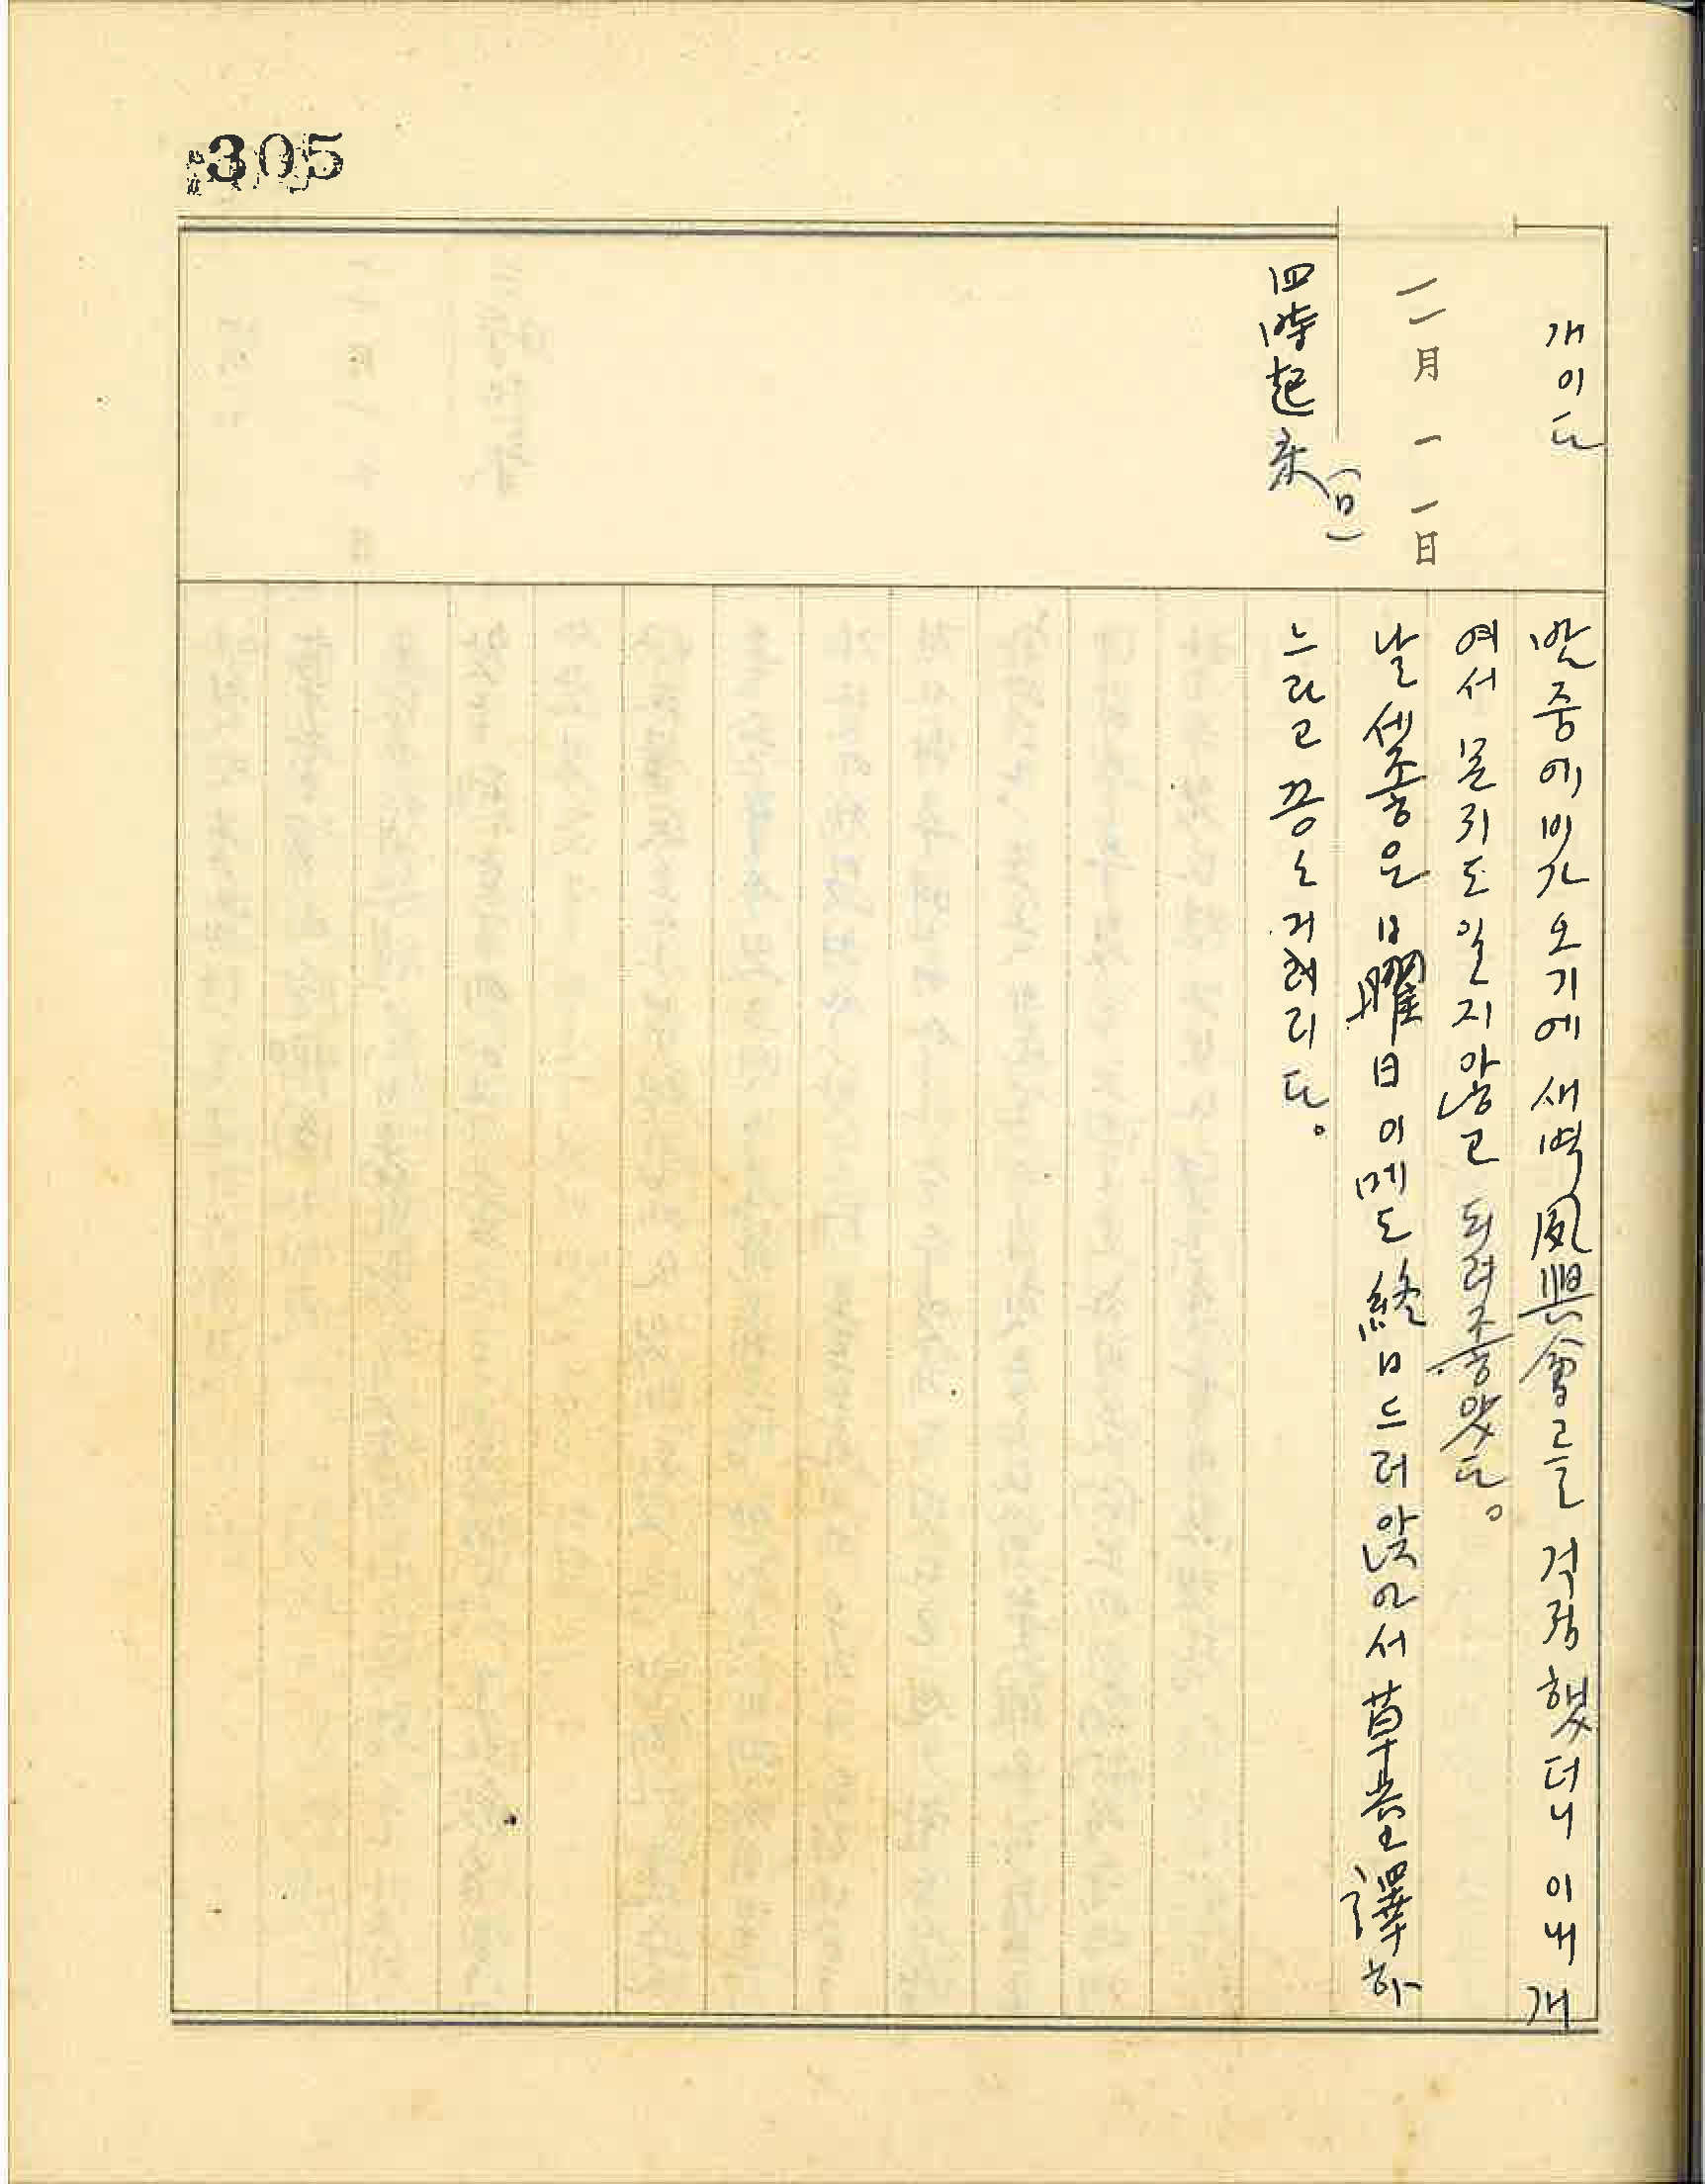 305
개이다
밤중에 비가 오기에 새벽 夙興會를 걱정했더니 이내 개
여서 몬지도 일지 않고 되려 좋았다。
一一月 一一日
(日)
날 세좋은 日曜日이메도 終日 드러앉아서 草堂 譯하
四時起床
느라고